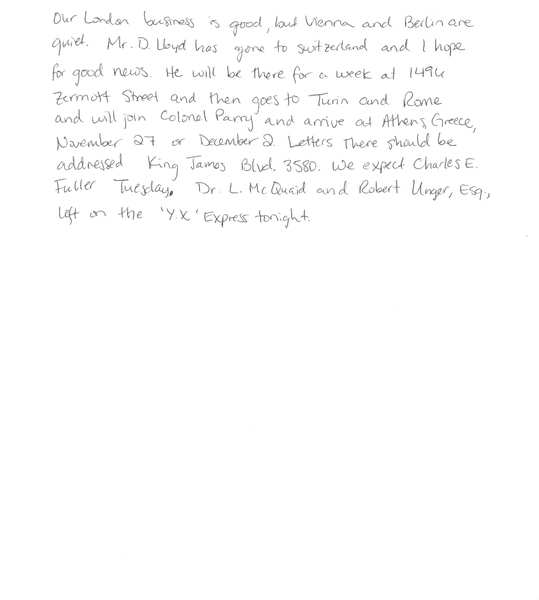 Our London business is good, but Vienna and Berlin are
quiet. Mr. D. Lloyd has gone to switzerland and I hope
for good news. He will be there for a week at 1496
Zermott Street and then goes to Turin and Rome
and will join Colonel Parry and arrive at Athens, Greece,
November 27 or December 2. Letters there should be
addressed King James Blvd. 3580. We expect Charles E.
Fuller Tuesday. Dr. L. McQuaid and Robert Unger, Esq.,
left on the 'Y.X' Express tonight.